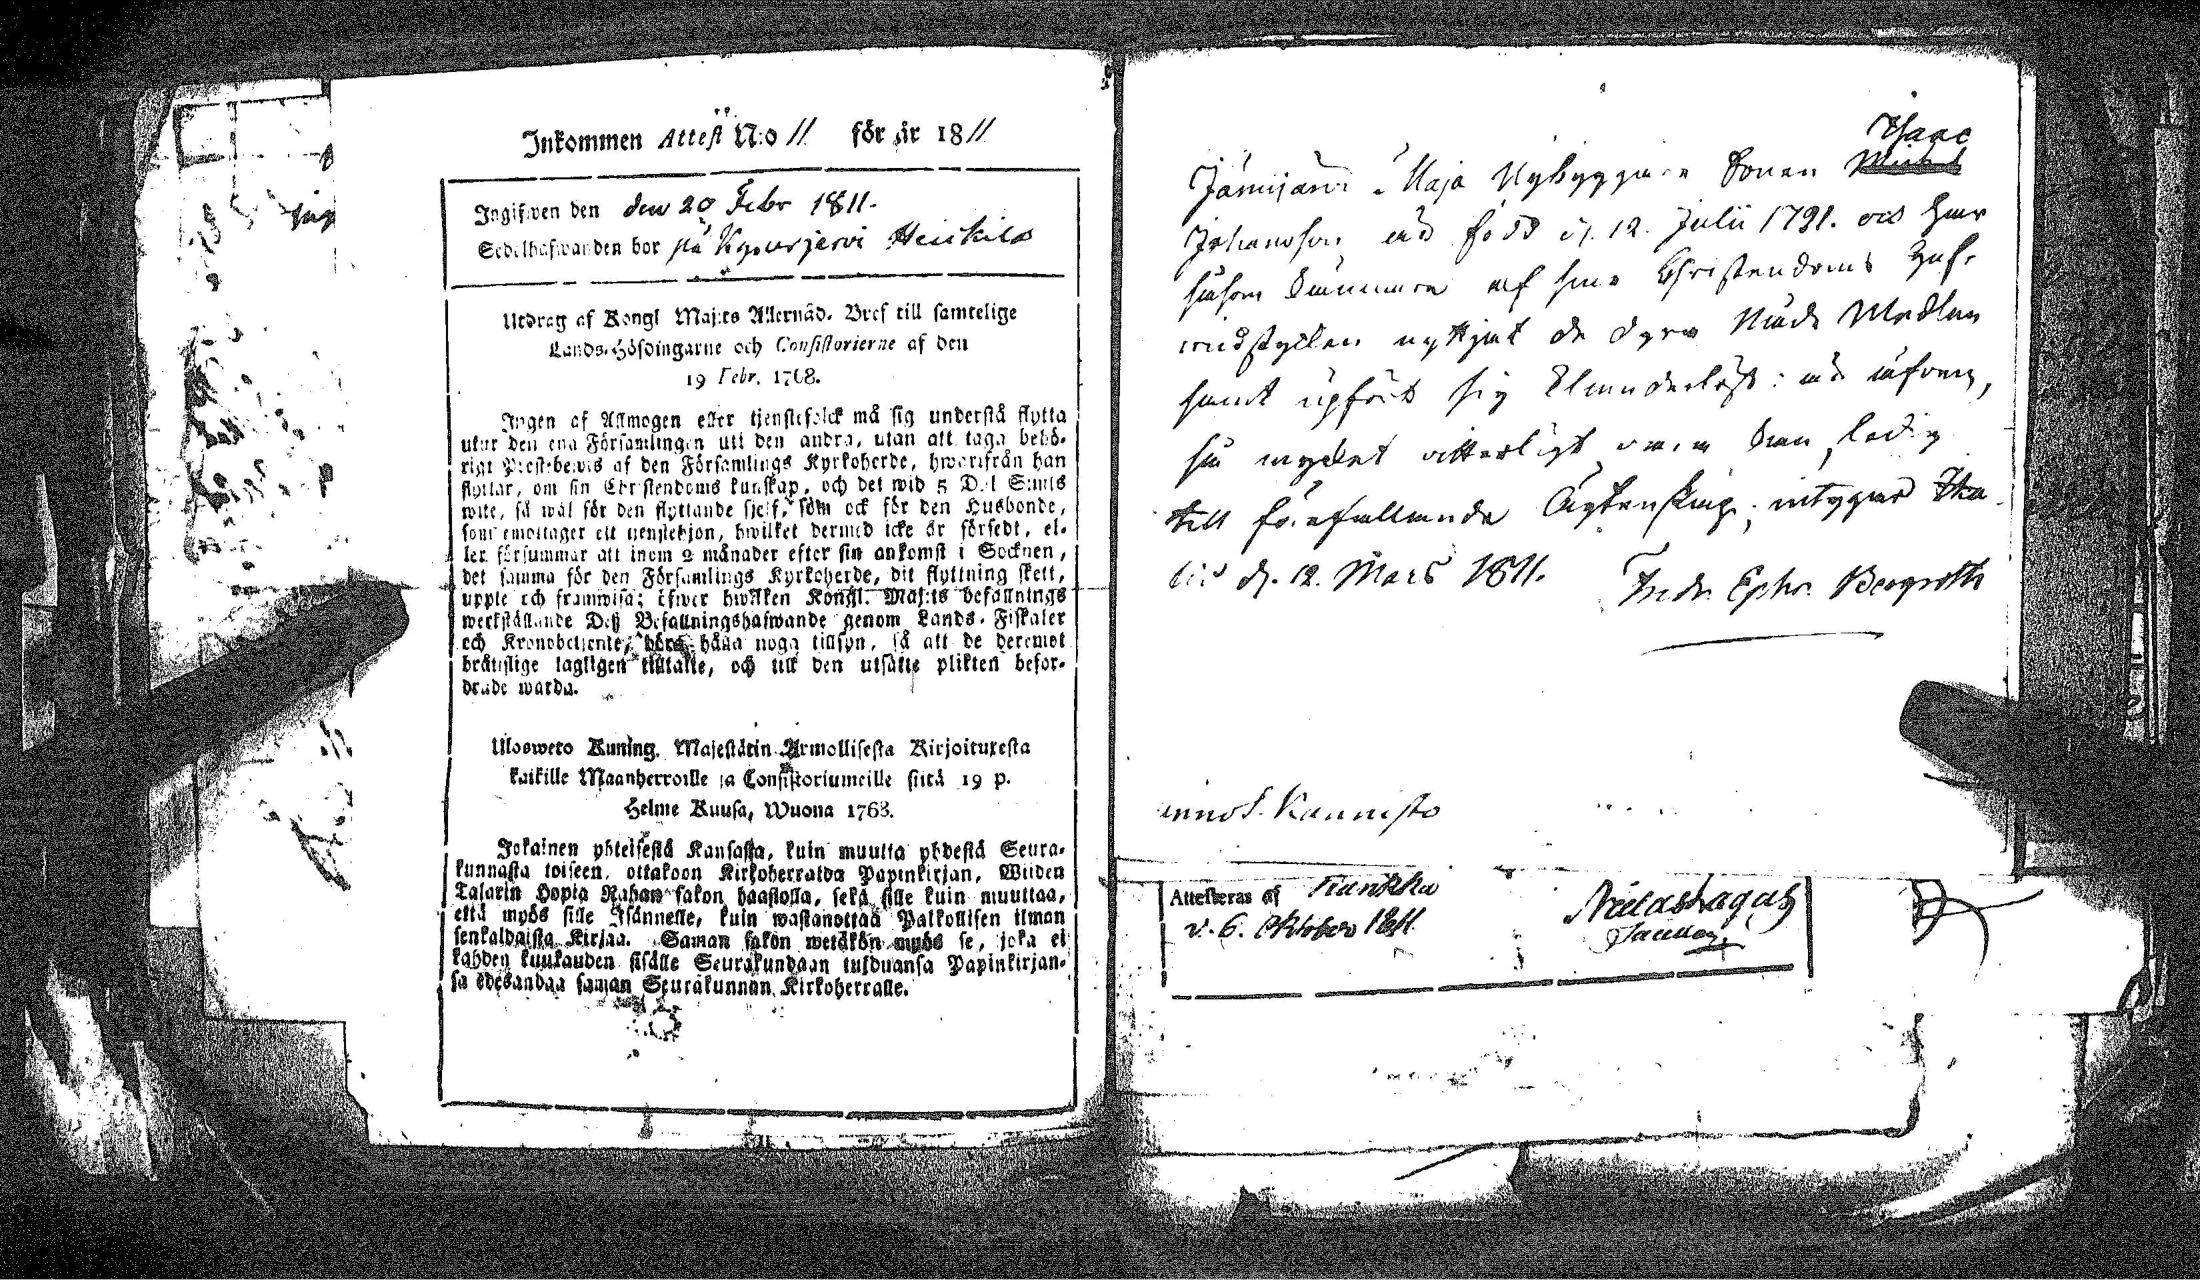 Inkommen Attest N:o 11 för år 1811
Ingifwen den den 20 Febr 1811.
Sedelhafwanden bor på Kyrösjerwi Heickilä
Utdrag af Kongl Maj:ts Allernåd. Bref till samtelige
Lands-Höfdingarne och Consistorierne af den
19 Febr. 1768.
Ingen af Allmogen eller tjenstefolck må sig understå flytta
utur den ena Församlingen uti den andra, utan att taga behö-
rigt Prestebewis af den Församlings Kyrkoherde, hwarifrån han
flyttar, om sin Christendoms kunskap, och det wid 5 Dal. S:mts
wite, så wäl för den flyttande sjelf, som ock för den Husbonde,
som emottager ett tjenstehjon, hwilket dermed icke är försedt, el-
ler försummar att inom 2 månader efter sin ankomst i Socknen,
det samma för den Församlings Kyrkoherde, dit flyttning skett,
uppte och framwisa; öfwer hwilken Kongl. Maj:ts befallnings
werkställande Deß Befallningshafwande genom Lands-Fiskaler
och Kronobetjente, böra hålla noga tillsyn, så att de deremot
bråtslige lagligen tilltalte, och till den utsatte plikten befor-
drade warda.
Ulosweto Kuning. Majestätin Armollisesta Kirjoituxesta
kaikille Maanherroille ja Consistoriumeille siitä 19 p.
Helme Kuusa, Wuona 1768.
Jokainen yhteisestä Kansasta, kuin muutta yhdestä Seura-
kunnasta toiseen, ottakoon Kirkoherralda Papinkirjan, Wiiden
Talarin Hopia Rahan sakon haastolla, sekä sille kuin muuttaa,
että myös sille Isännelle, kuin wastanottaa Palkollisen ilman
senkaldaista Kirjaa. Saman sakon wetäkön myös se, joka ei
kahden kuukauden sisälle Seurakundaan tulduansa Papinkirjan-
sa edesandaa saman Seurakunnan Kirkoherralle.
Isaac
Jämijärvi Maja Nybyggare Sonen Michel
Johansson är född d. 12. Julii 1791. och har
såsom af sine Christendoms
nyttjat de dyra Nåde Medlen
samt upfört sig oklanderligt: är äfwen,
så mycket witterligt är, ledig
till förefallande Ägtenskap; intygar Ika-
lis d. 12. Mars 1811. Fredr. Ephr. Bergroth
Kannisto
Attesteras af
d. 6. Oktober 1811.